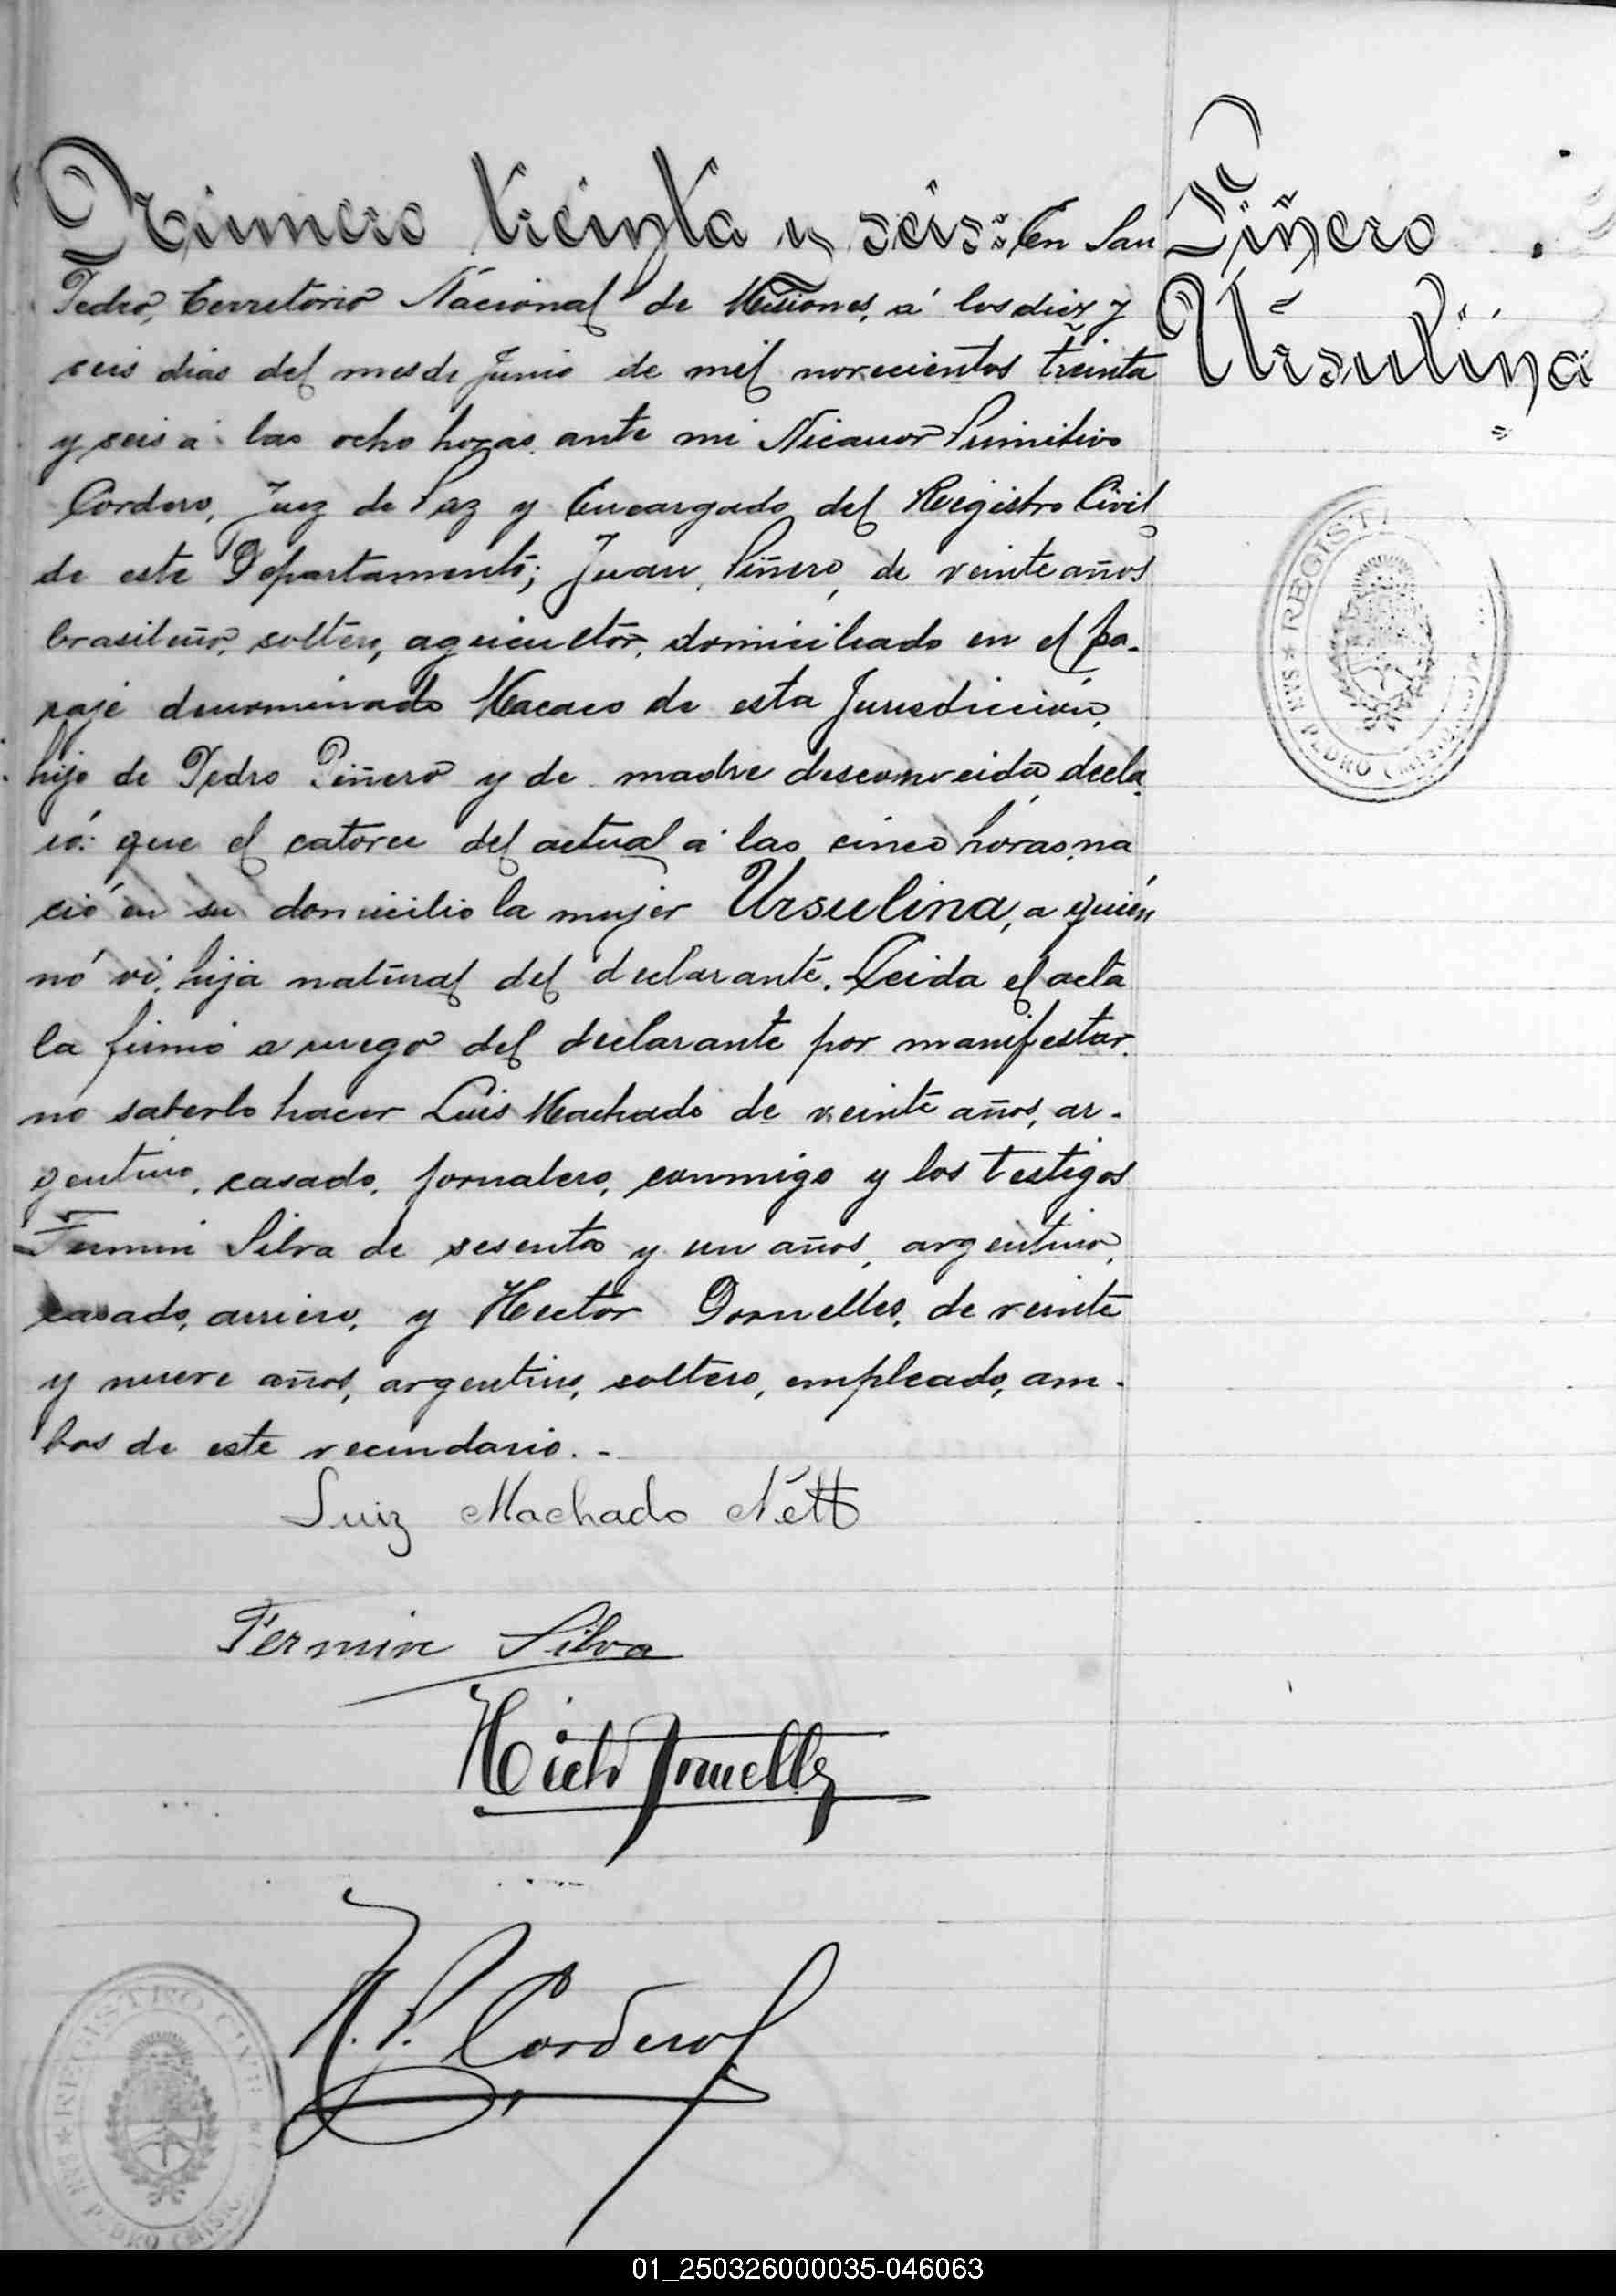 Número treinta y seis: En San
Pedro, Territorio Nacional de Misiones, á los diez y
seis dias del mes de Junio de mil novecientos treinta
y seis á las ocho horas, ante mi Nicanor Primitivo
Cordero, Juez de Paz y Encargado del Registro Civil
de este Departamento; Juan Piñero, de veinte años
brasileño, soltero, agricultor, domiciliado en el pa-
raje denominado Macaco de esta Jurisdicción,
hijo de Pedro Piñero y de madre desconocida, decla
ró: que el catorce del actual á las cinco horas, na
ció en su domicilio la mujer Ursulina, a quién
nó vi, hija natural del declarante. Leida el acta
la firmó a ruego del declarante por manifestar
no saberlo hacer Luis Machado de veinte años, ar-
gentino, casado, jornalero, conmigo y los testigos
Fermin Silva de sesenta y un años, argentino,
casado, arriero, y Hector Dornelles, de veinte
y nueve años, argentino, soltero, empleado, am-
bos de este vecindario.-
Luiz Machado Nett
Fermin Silva
Hector Dornelles
N. P. Cordero
Piñero
Ursulina
REGIST
SAN PEDRO (MISIONES)
REGISTRO CIVIL
SAN PEDRO (MISIO
01_250326000035-046063